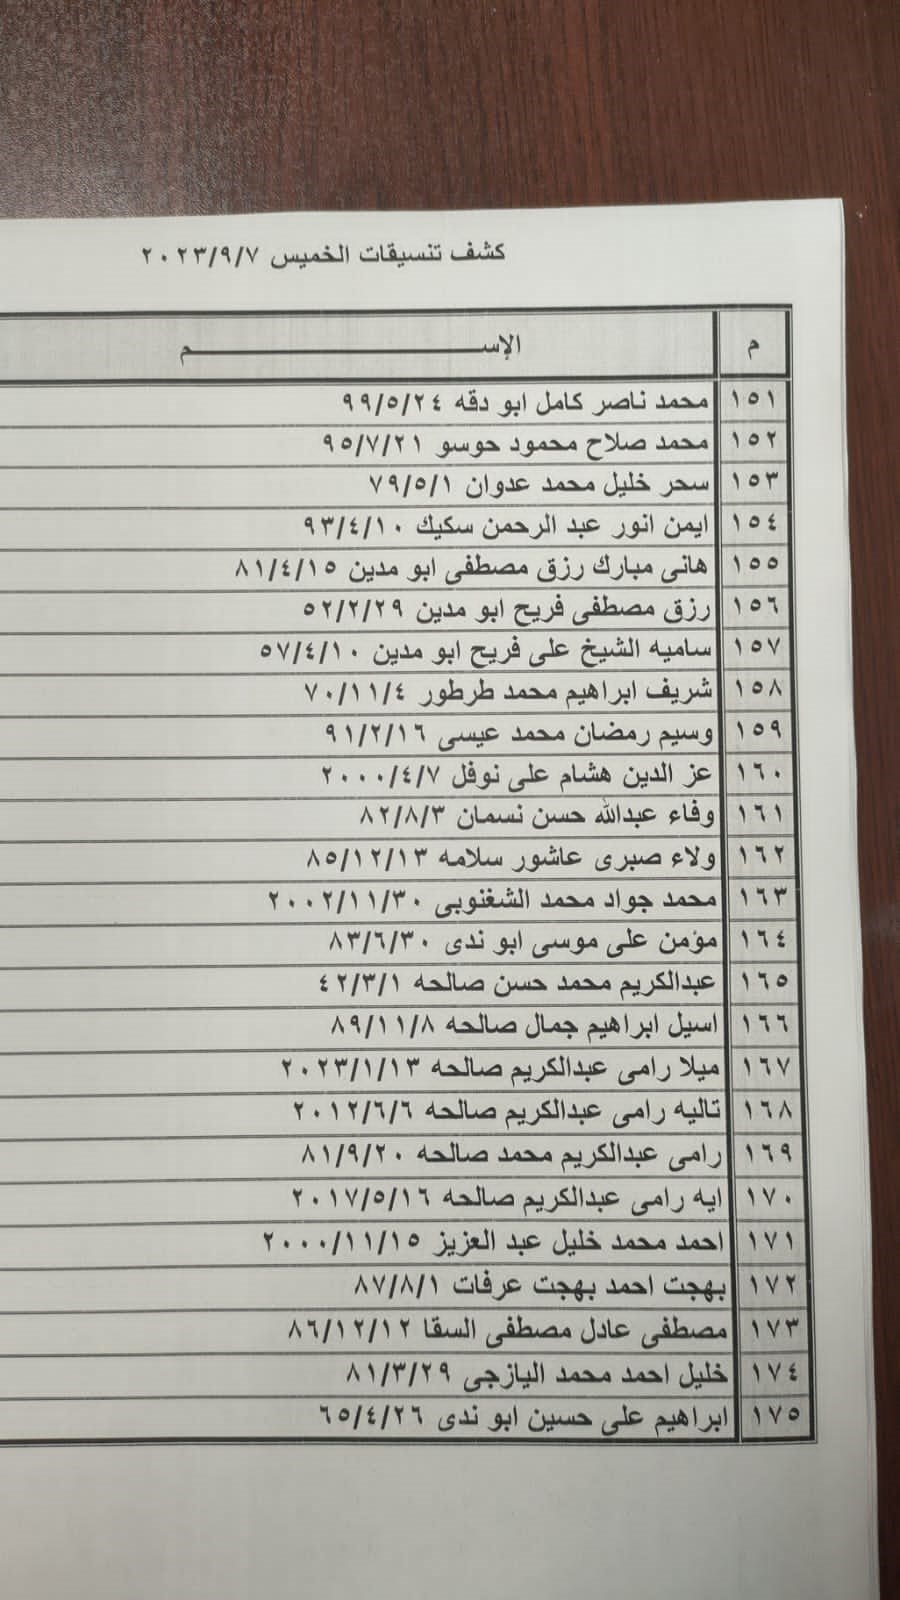 كشف تنسيقات الخميس ٢٠٢٣/٩/٧
م الإســـــــــم
١٥١ محمد ناصر كامل ابو دقه ٩٩/٥/٢٤
١٥٢ محمد صلاح محمود حوسو ٩٥/٧/٢١
١٥٣ سحر خليل محمد عدوان ٧٩/٥/١
١٥٤ ايمن انور عبد الرحمن سكيك ٩٣/٤/١٠
١٥٥ هانى مبارك رزق مصطفى ابو مدين ٨١/٤/١٥
١٥٦ رزق مصطفى فريح ابو مدين ٥٢/٢/٢٩
١٥٧ ساميه الشيخ على فريح ابو مدين ٥٧/٤/١٠
١٥٨ شريف ابراهيم محمد طرطور ٧٠/١١/٤
١٥٩ وسيم رمضان محمد عيسى ٩١/٢/١٦
١٦٠ عز الدين هشام على نوفل ٢٠٠٠/٤/٧
١٦١ وفاء عبدالله حسن نسمان ٨٢/٨/٣
١٦٢ ولاء صبرى عاشور سلامه ٨٥/١٢/١٣
١٦٣ محمد جواد محمد الشغنوبى ٢٠٠٢/١١/٣٠
١٦٤ مؤمن على موسى ابو ندى ٨٣/٦/٣٠
١٦٥ عبدالكريم محمد حسن صالحه ٤٢/٣/١
١٦٦ اسيل ابراهيم جمال صالحه ٨٩/١١/٨
١٦٧ ميلا رامى عبدالكريم صالحه ٢٠٢٣/١/١٣
١٦٨ تاليه رامى عبدالكريم صالحه ٢٠١٢/٦/٦
١٦٩ رامى عبدالكريم محمد صالحه ٨١/٩/٢٠
١٧٠ ايه رامى عبدالكريم صالحه ٢٠١٧/٥/١٦
١٧١ احمد محمد خليل عبد العزيز ٢٠٠٠/١١/١٥
١٧٢ بهجت احمد بهجت عرفات ٨٧/٨/١
١٧٣ مصطفى عادل مصطفى السقا ٨٦/١٢/١٢
١٧٤ خليل احمد محمد اليازجى ٨١/٣/٢٩
١٧٥ ابراهيم على حسين ابو ندى ٦٥/٤/٢٦